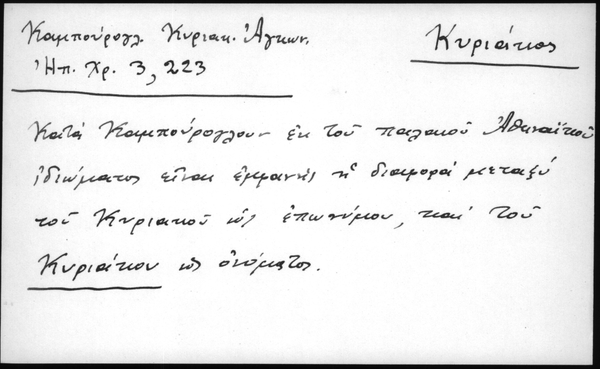 Καμπούρογλ. Κυριακ. Ἀγκων.
Κυριάκος
Ἠπ. Χρ. 3, 223
Κατὰ Καμπούρογλουν ἐκ τοῦ παλαιοῦ Ἀθηναϊκοῦ
ἰδιώματος εἶναι ἐμφανὴς ἡ διαφορὰ μεταξὺ
τοῦ Κυριακοῦ ὡς ἐπωνύμου, καὶ τοῦ
Κυριάκου ὡς ὀνόματος.